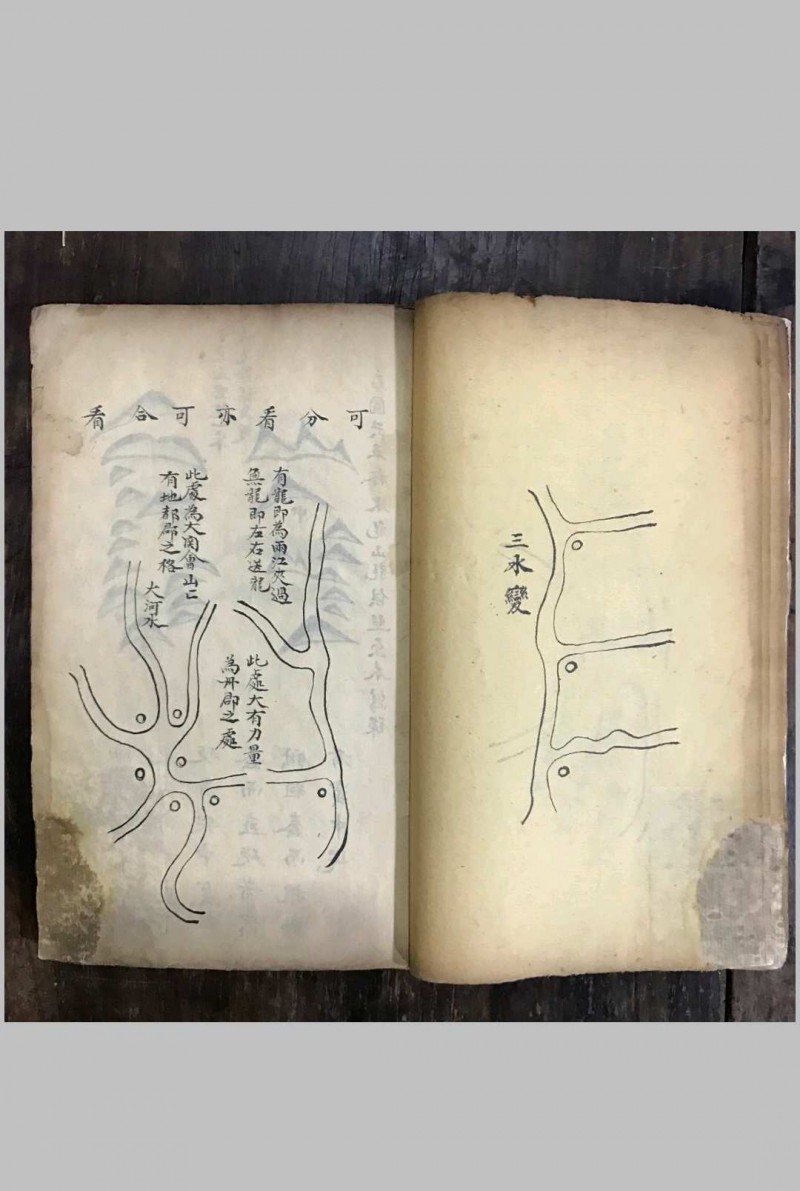 三水變
可分看亦可合看
有龍即為兩江夾過
無龍即左右送龍
此處為大関會山二
有地都郡之格
大河水
此處大有力量
為州郡之處